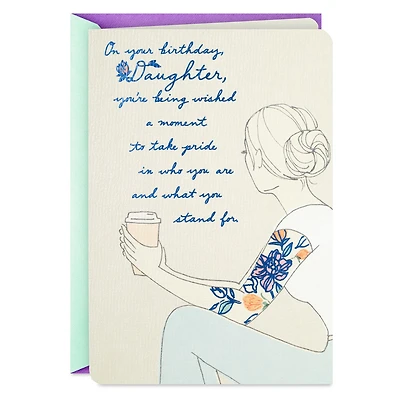 On your birthday,
Daughter,
you're being wished
a moment
to take pride
in who you are
and what you
stand for.